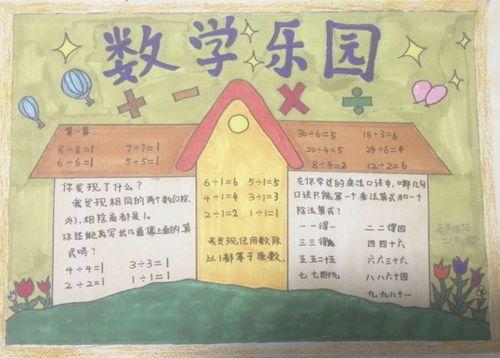 数学乐园
+ − × ÷
算一算
8÷8=1 7÷7=1
6÷6=1 5÷5=1
你发现了什么?
我发现相同的两个数(0除
外),相除商都是1。
你还能再写出几道像上面的算
式吗?
4÷4=1 3÷3=1
2÷2=1 1÷1=1
6÷1=6 5÷1=5
4÷1=4 3÷1=3
2÷1=2 1÷1=1
我发现任何数除
以1都等于原数。
30÷6=5 18÷3=6
20÷4=5 24÷6=4
8÷4=2 12÷2=6
在你学过的乘法口诀中,哪几句
口诀只能算一个乘法算式和一个
除法算式?
一一得一 二二得四
三三得九 四四十六
五五二十五 六六三十六
七七四十九 八八六十四
九九八十一